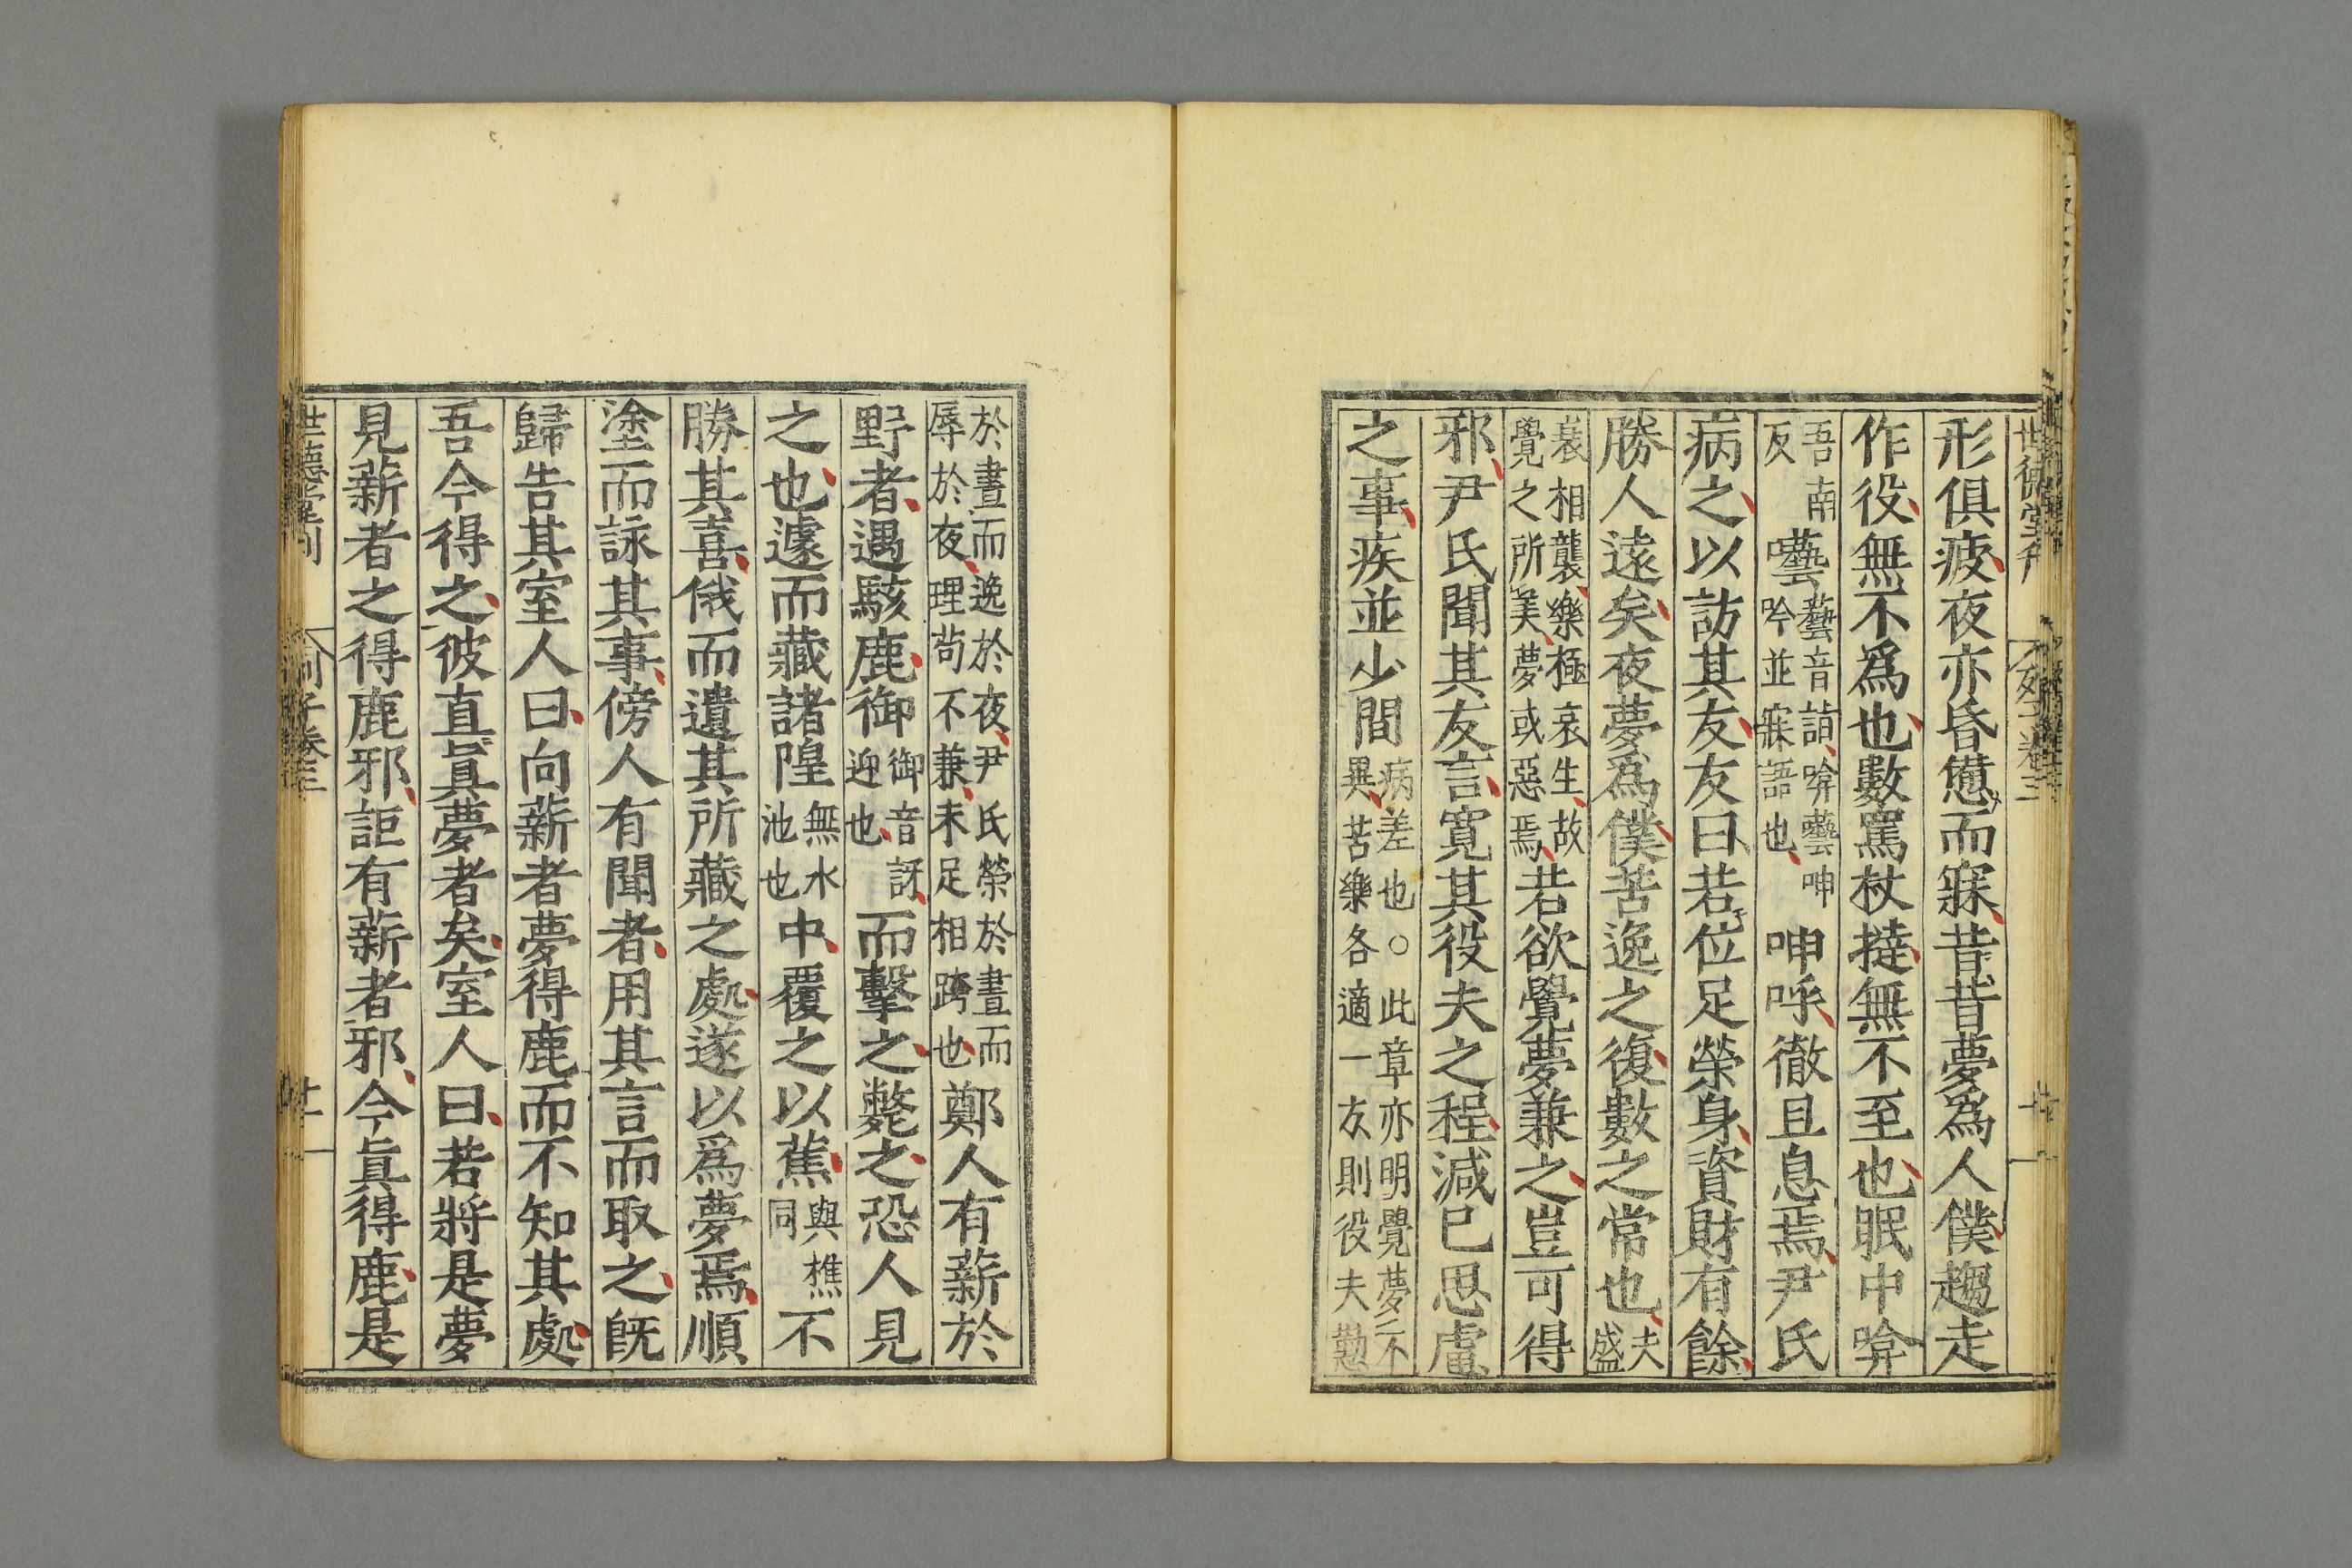 形俱疲夜亦昏憊而寐昔昔夢爲人僕趨走
作役無不爲也數罵杖撻無不至也眠中啽
吾南
反
囈
囈音詣啽囈呻
吟並寐語也
呻呼徹旦息焉尹氏
病之以訪其友友曰若位足榮身資財有餘
勝人遠矣夜夢爲僕苦逸之復數之常也
夫
盛
衰相襲樂極哀生故
覺之所美夢或惡焉
若欲覺夢兼之豈可得
邪尹氏聞其友言寬其役夫之程減已思慮
之事疾並少間
病差也○此章亦明覺夢不
異苦樂各適一方則役夫懃
於晝而逸於夜尹氏榮於晝而
辱於夜理苟不兼未足相跨也
鄭人有薪於
野者遇駭鹿御
御音訝
迎也
而擊之斃之恐人見
之也遽而藏諸隍
無水
池也
中覆之以蕉
與樵
同
不
勝其喜俄而遺其所藏之處遂以爲夢焉順
塗而詠其事傍人有聞者用其言而取之旣
歸告其室人曰向薪者夢得鹿而不知其處
吾今得之彼直眞夢者矣室人曰若將是夢
見薪者之得鹿邪詎有薪者邪今眞得鹿是
世德堂刊
列子卷三